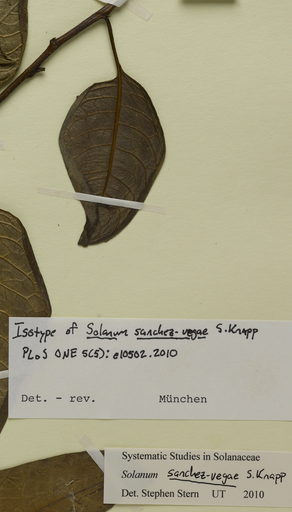 Isotype of Solanum sanchez-vegae S. Knapp
PLoS ONE 5(5): e10502. 2010
Det. - rev. München
Systematic Studies in Solanaceae
Solanum sanchez-vegae S. Knapp
Det. Stephen Stern UT 2010